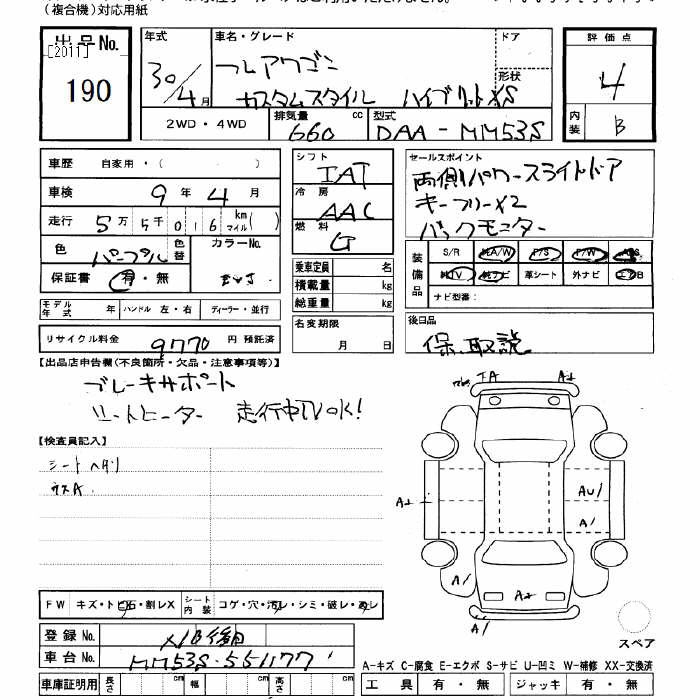 (複合機)対応用紙
出品No.
[2011]
190
年式 30/4月
車名・グレード フレアワゴン
カスタムスタイル ハイブリットXS
ドア
形状
評価点
4
内装 B
2WD・4WD
排気量 660 cc
型式 DAA-MM53S
車歴 自家用・( )
車検 9年4月
走行 5万5千016 km マイル( )
色 パープル
色替
カラーNo.
保証書 有・無
モデル年式 年 ハンドル 左・右 ディーラー・並行
リサイクル料金 9770 円 預託済
シフト IAT
冷房 AAC
燃料 G
乗車定員 名
積載量 kg
総重量 kg
名変期限
月 日
セールスポイント
両側パワースライドドア
キーフリーX2
バックモニター
装備品
S/R A/W P/S P/W ABS
純TV 純ナビ 革シート 外ナビ エアB
ナビ型番:
後日品
保.取説
【出品店申告欄(不良箇所・欠品・注意事項等)】
ブレーキサポート
シートヒーター 走行中TVOK!
【検査員記入】
シートヘタリ
ガラスA.
A2
A2
AU1
A1
A1
A2
A1
スペア
FW キズ・トビ石・割レX
シート内装 コゲ・穴・汚レ・シミ・破レ・スレ
登録No.
車台No. MM53S-551177
A-キズ C-腐食 E-エクボ S-サビ U-凹ミ W-補修 XX-交換済
車庫証明用 長さ cm 幅 cm 高さ cm
工具 有・無 ジャッキ 有・無